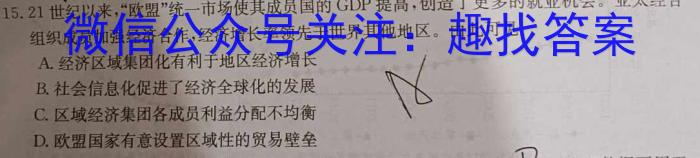 15.21世纪以来,“欧盟”统一市场使其成员国的GDP提高,创造了更多的就业机会。亚太经合
组织成员加强经济合作,经济增长率领先于世界其他地区。
微信公众号关注:趣找答案
A. 经济区域集团化有利于地区经济增长
B. 社会信息化促进了经济全球化的发展
C. 区域经济集团各成员利益分配不均衡
D. 欧盟国家有意设置区域性的贸易壁垒